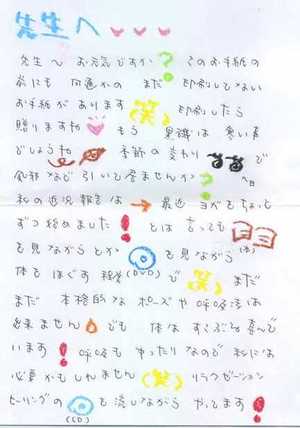 先生へ
先生〜 お元気ですか? このお手紙の
前にも 何通かの まだ 印刷してない
お手紙があります(笑) 印刷したら
贈りますね もう は 寒い事
でしょうね 季節の変わり で
風邪など引いてませんか?
私の近況報告は → 最近 ヨガをちょっと
ずつ始めました! とは言っても
を見ながらとか を見ながら
体をほぐす 程度 (DVD) で (笑) まだ
まだ 本格的なポーズや呼吸法は
出来ません でも 体は すこぶる喜んで
います! 呼吸も ゆったりなので 私には
必要かもしれません (笑) リラクゼーション
ヒーリングの (CD) を流しながら やってます!